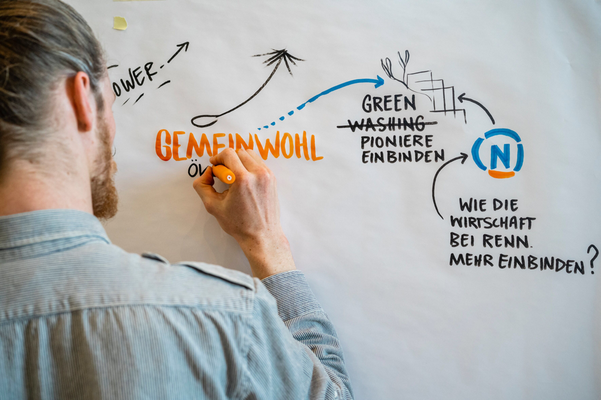 OWER
GEMEINWOHL
GREEN
WASHING
PIONIERE
EINBINDEN
N
WIE DIE
WIRTSCHAFT
BEI RENN.
MEHR EINBINDEN?